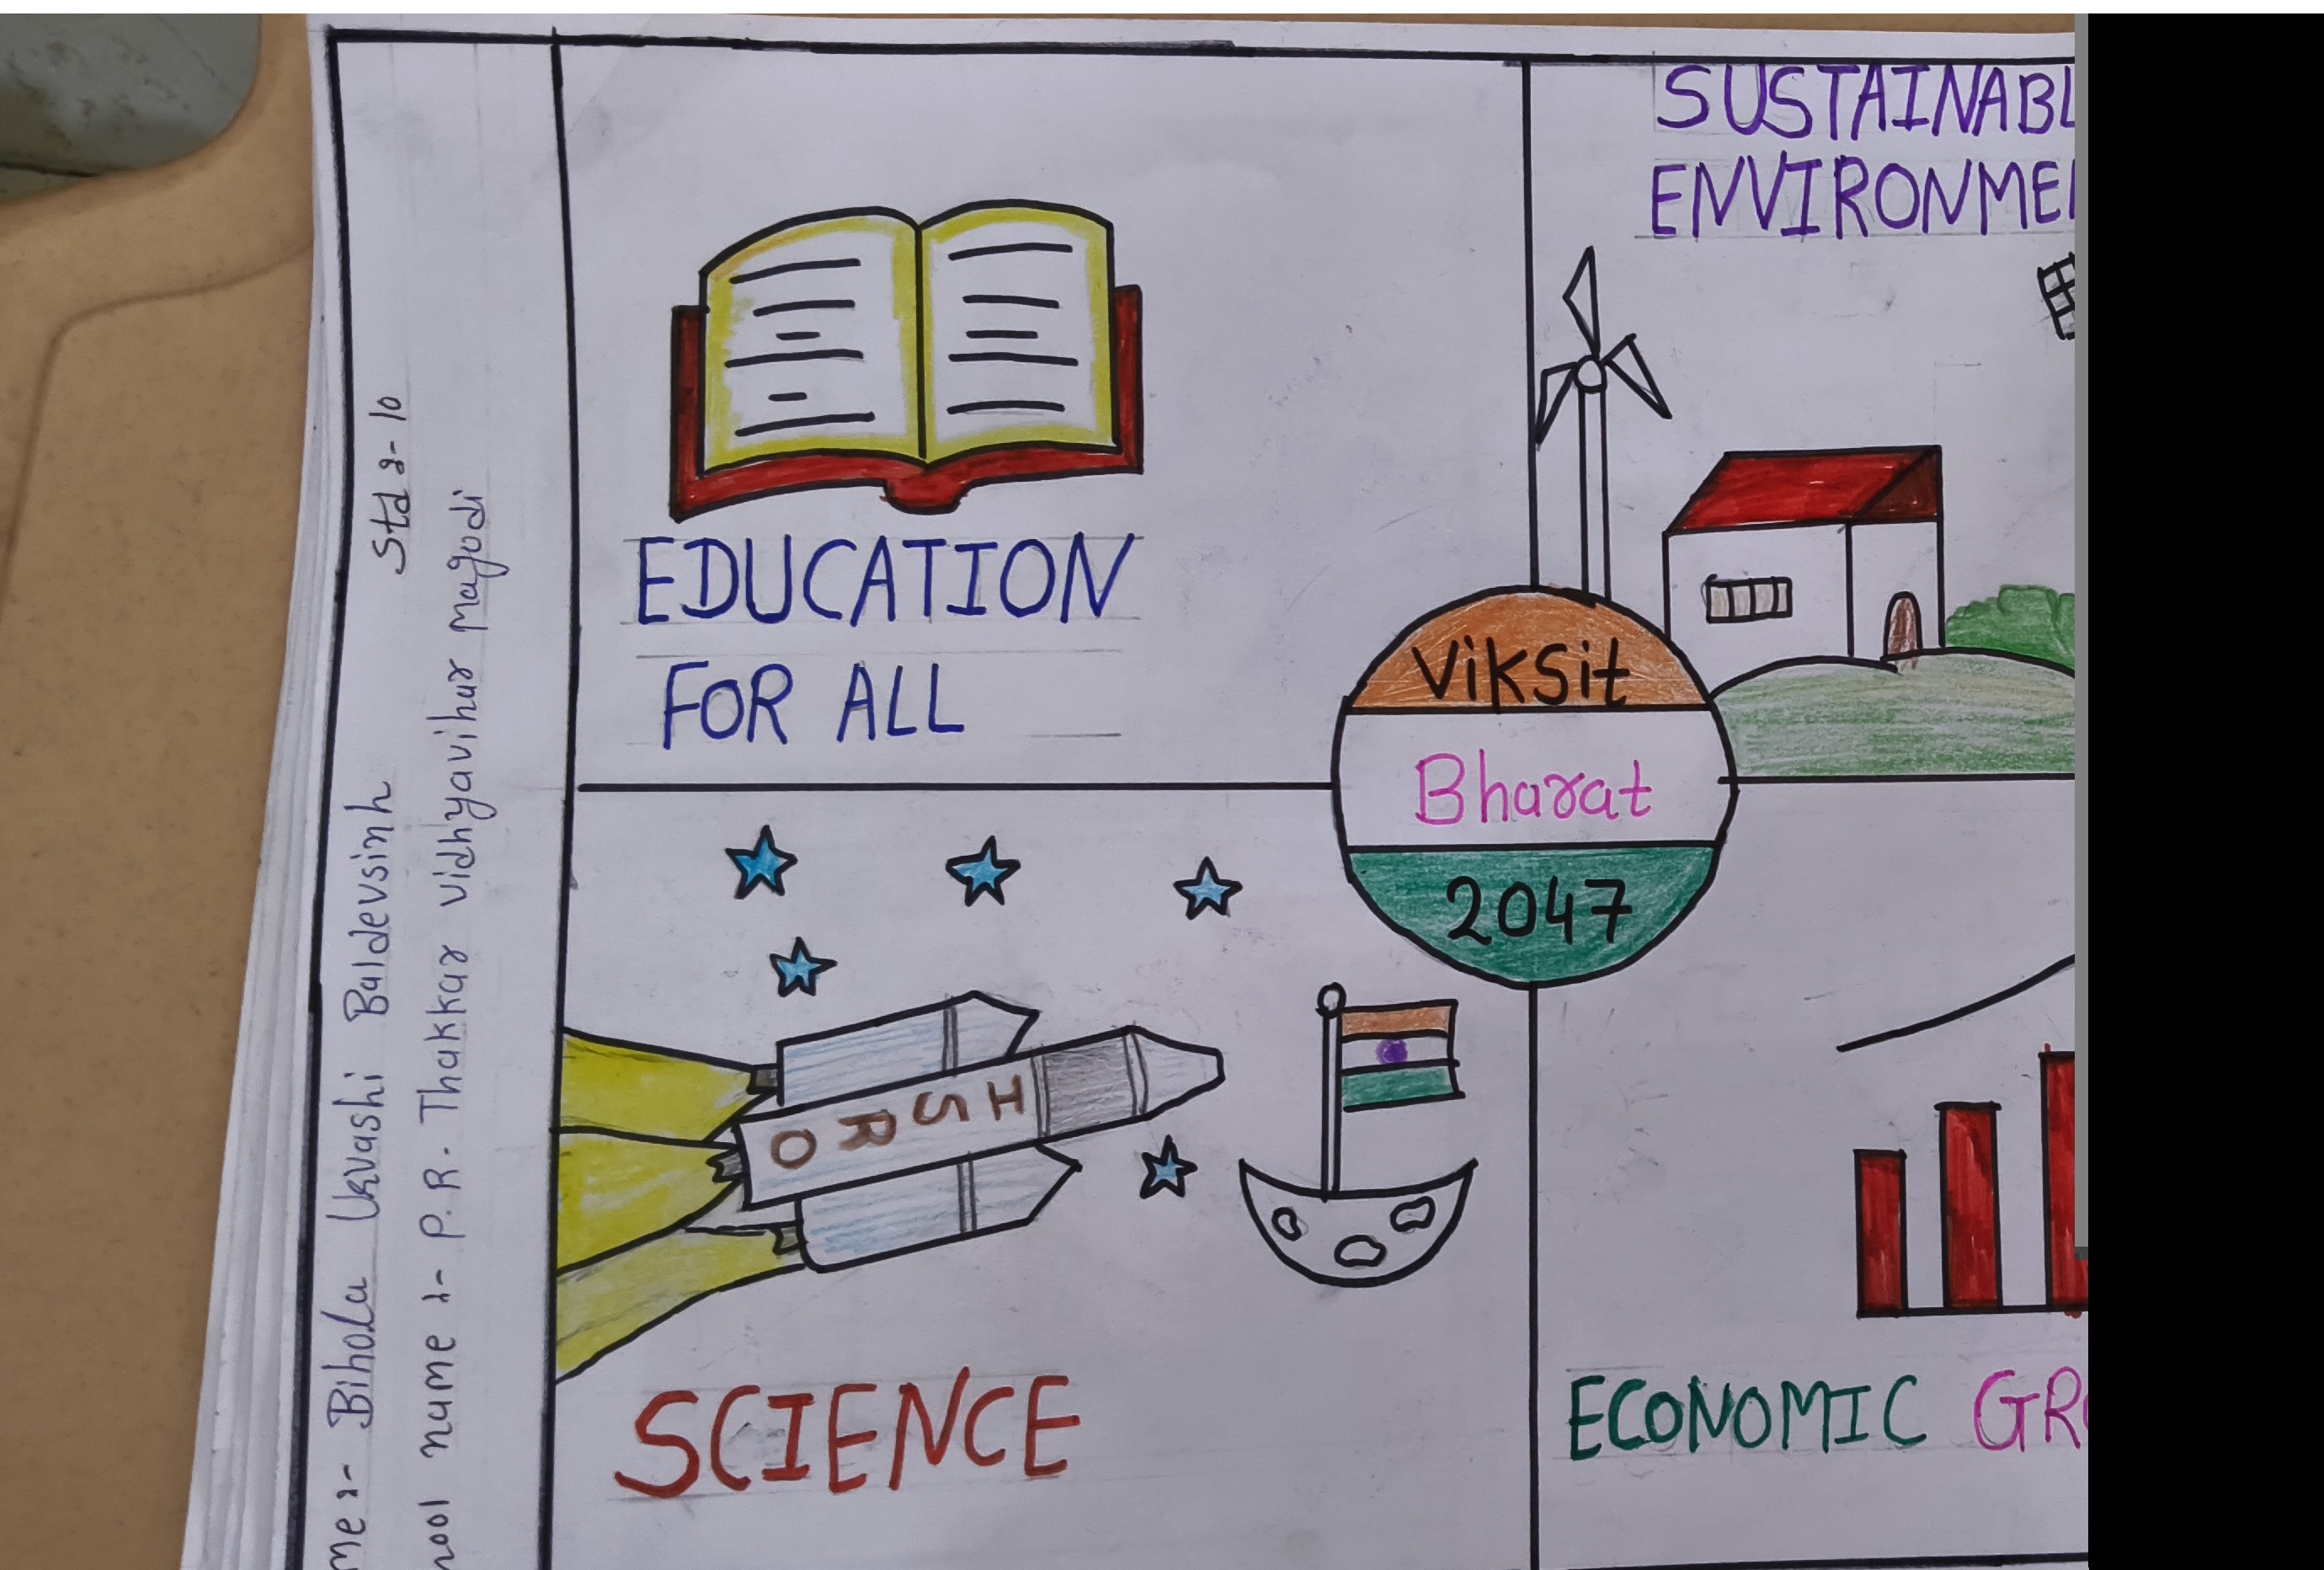 SUSTAINABL
ENVIRONME
EDUCATION
FOR ALL
Viksit
Bharat
2047
ISRO
SCIENCE
ECONOMIC GR
me :- Bihola Urvashi Baldevsinh Std :- 10
hool name :- P. R. Thakkar vidhyavihar Magodi